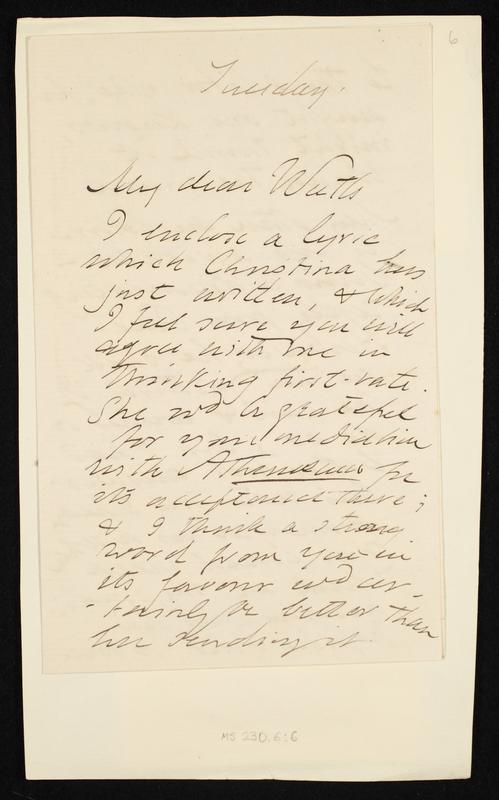 6
Tuesday.
My dear Watts
I enclose a lyric
which Christina has
just written, & which
I feel sure you will
agree with me in
thinking first-rate.
She wd be grateful
for your mediation
with Athenaeum for
its acceptance there;
& I think a strong
word from you in
its favour wd cer-
-tainly be better than
her sending it.
MS 230.6:6